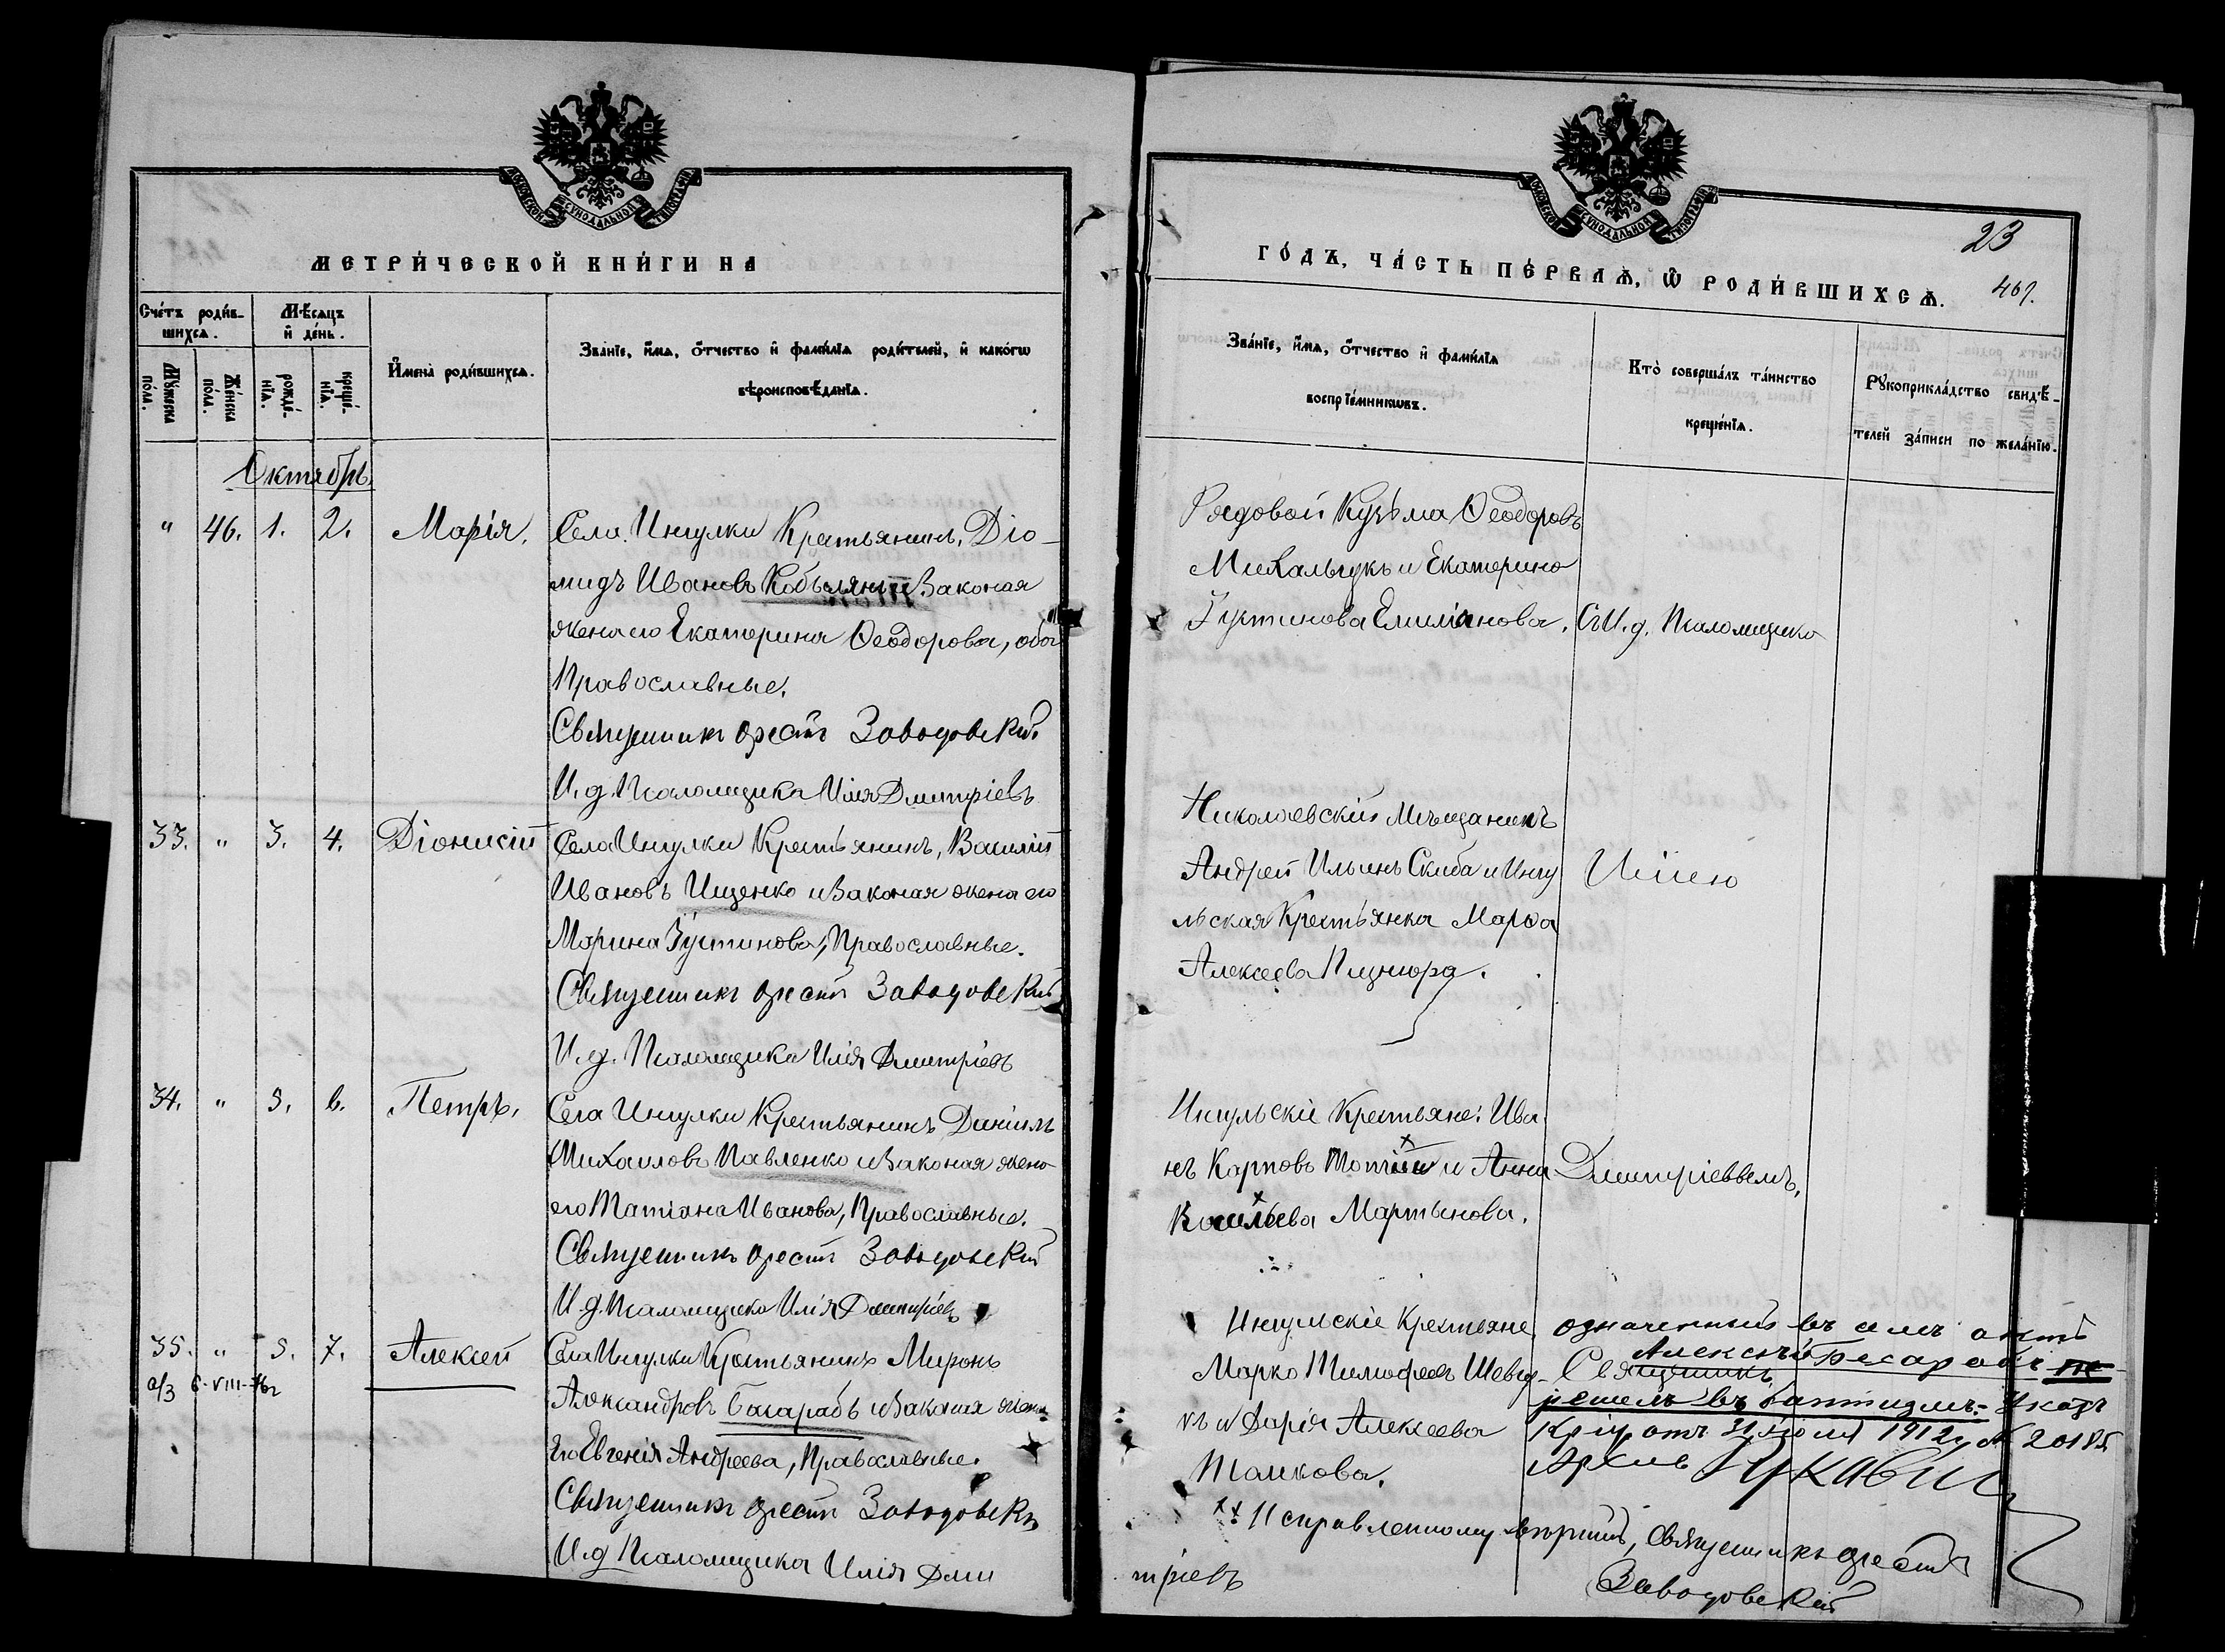 МОСКОВСКОЙ СѴНОДАЛЬНОЙ ТИПОГРАФІИ
МЕТРИ́ЧЕСКОЙ КНИ́ГИ НА
Сче́тъ роди́вшихсѧ.
Мѣ́сѧцъ и҆ де́нь.
И҆мена̀ роди́вшихсѧ.
Зва́нїе, и҆́мѧ, ѻ҆́тчество и҆ фами́лїѧ роди́телей, и҆ како́гѡ
вѣроисповѣ́данїѧ.
Мꙋ́жеска по́ла.
Же́нска по́ла.
рожде́нїѧ.
креще́нїѧ.
Октябрь.
" 46. 1. 2. Марія.
Села Ингулки Крестьянинъ, Діо-
мидъ Ивановъ Кобылянъ и Законая
жена его Екатерина Ѳеодорова, оба
Православные.
Священникъ Орестъ Заводовскій
И. д. Псаломщика Илія Дмитріевъ
33. " 3. 4. Діонисій
Села Ингулки Крестьянинъ, Василій
Ивановъ Ищенко и Законая жена его
Марина Іустинова, Православные.
Священникъ Орестъ Заводовскій
И. д. Псаломщика Илія Дмитріевъ
34. " 5. 6. Петръ.
Села Ингулки Крестьянинъ Даніилъ
Михаиловъ Павленко и Законая жена
его Татіана Иванова, Православные.
Священникъ Орестъ Заводовскій
И. д. Псаломщика Илія Дмитріевъ
35. " 5. 7. Алексей
Села Ингулки Крестьянинъ Миронъ
Александровъ Басарабъ и Законая жена
Его Евгенія Андреева, Православные.
Священникъ Орестъ Заводовскій
И. д. Псаломщика Илія Дми
МОСКОВСКОЙ СѴНОДАЛЬНОЙ ТИПОГРАФІИ
23
ГО́ДЪ, ЧА́СТЬ ПЕ́РВАѦ, Ѡ҆ РОДИ́ВШИХСѦ.
467.
Зва́нїе, и҆́мѧ, ѻ҆́тчество и҆ фами́лїѧ
воспрїе́мникѡвъ.
Кто̀ соверша́лъ та́инство
креще́нїѧ.
Рꙋкоприкла́дство свидѣ́-
телей за́писи по жела́нїю.
Рядовой Кузьма Ѳеодоровъ
Михальчукъ и Екатерина
Іустинова Емиліанова.
Съ И. д. Псаломщика
Николаевскій Мѣщанинъ
Андрей Ильинъ Скиба и Ингу
льская Крестьянка Марѳа
Алексеева
Иліею
Ингульскіе Крестьяне: Ива
нъ Карповъ и Анна
Васильева Мартынова.
Дмитріеввемъ.
Ингульскіе Крестьяне
Марко Тимофеевъ Шевчу-
къ и Дарія Алексеева
Означенный въ семъ актѣ
Алексѣй Бесарабъ пе-
Священникъ
решелъ въ баптизмъ.- Указъ
отъ 31 іюля 1912 г. № 20185
Исправленному вѣрить, Священникъ Орестъ
Заводовскій
тріевъ